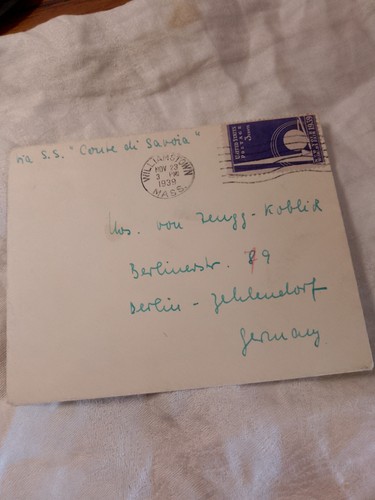 via S.S. "Conte di Savoia"
WILLIAMSTOWN
NOV 23
3 PM
1939
MASS.
UNITED STATES
POSTAGE
3 CENTS
1939
von
Berlinerstr. 9
Berlin - Zehlendorf
Germany